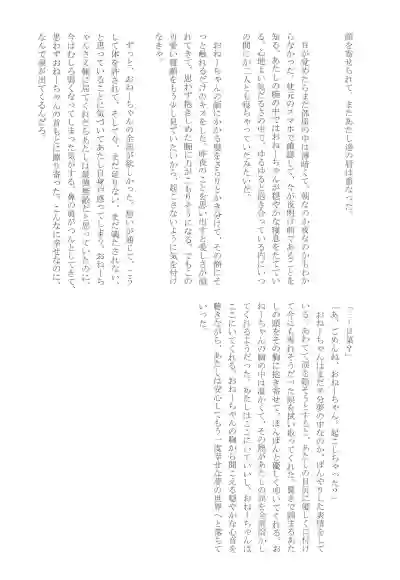 顔を寄せられて、またあたし達の唇は重なった。
目が覚めたらまだ部屋の中は薄暗くて、朝なのか夜なのかもわか
らなかった。枕元のスマホで確認して、今が夜明け前であることを
知る。あたしの腕の中ではおねーちゃんが穏やかな寝息をたててい
る。心地よい気だるさの中で、ゆるゆると抱き合っている内にいつ
の間にか二人とも寝ちゃっていたみたいだ。
おねーちゃんの顔にかかる髪をさらりとかき分けて、その額にそ
っと触れるだけのキスをした。昨夜のことを思い出すと愛しさが溢
れてきて、思わず抱きしめた腕に力がこもりそうになる。でもこの
可愛い寝顔をもう少し見ていたいから、起こさないように気を付け
なきゃ。
ずっと、おねーちゃんの全部が欲しかった。想いが通じて、こう
して体を許されて、そして今、まだ足りない、まだ満たされない、
と思っていることに気づいてあたし自身が惑ってしまう。おねーち
ゃんさえ側に居てくれたらあたしは最強無敵だと思っていたのに、
今はむしろ弱くなってしまった気がする。鼻の奥がつんとしてきて、
思わずおねーちゃんの首もとに擦り寄った。こんなに幸せなのに、
なんで涙が出てくるんだろ。
「…日菜？」
「あ、ごめんね、おねーちゃん。起こしちゃった？」
おねーちゃんはまだ半分夢の中なのか、ぼんやりした表情をして
いる。あわてて涙を隠そうとすると、あたしの目尻に優しく口付け
て今にも零れそうだった涙を拭い取ってくれた。驚きで固まるあた
しの頭をその胸に抱き寄せて、ぽんぽんと優しく叩いてくれる。お
ねーちゃんの腕の中は温かくて、その熱があたしの涙を全部溶かし
てくれるようだった。あたしはここにいていいし、おねーちゃんは
ここにいてくれる。おねーちゃんの胸から聞こえる穏やかな心音を
聴きながら、あたしは安心してもう一度幸せな夢の世界へと落ちて
いった。